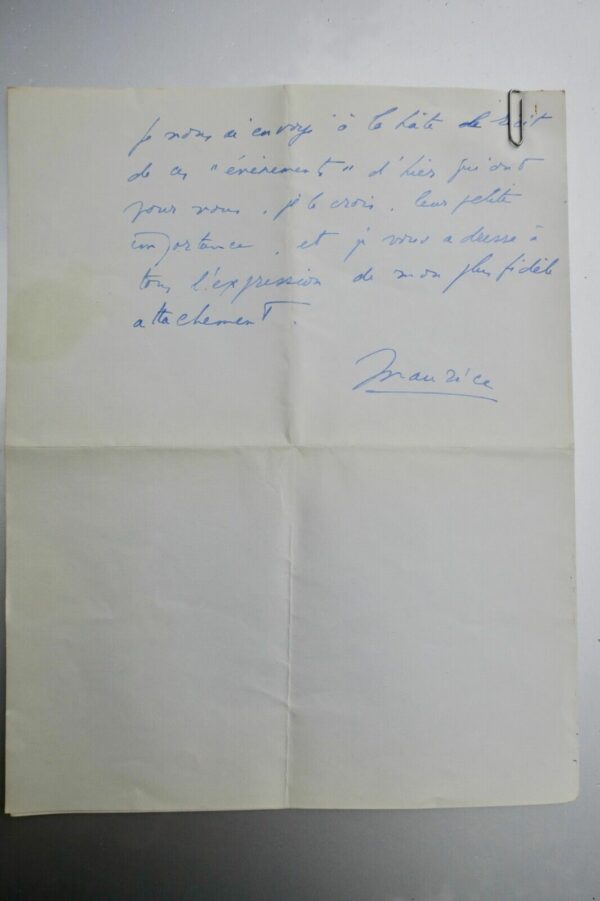 Je vous envoye à la hâte le récit
de ces "évènements" d'hier qui ont
pour nous, je le crois, leur petite
importance, et je vous adresse à
tous l'expression de mon plus fidèle
attachement.
Maurice